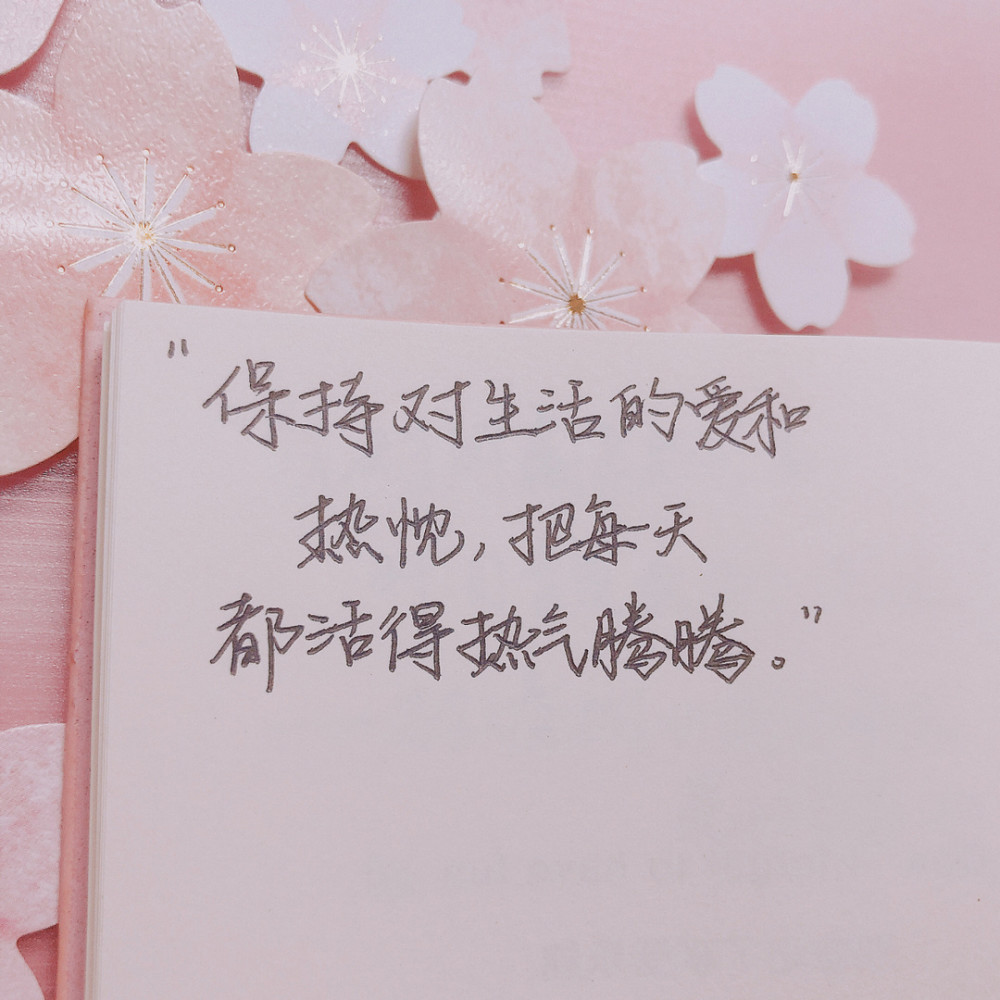 "保持对生活的爱和
热忱,把每天
都活得热气腾腾。"